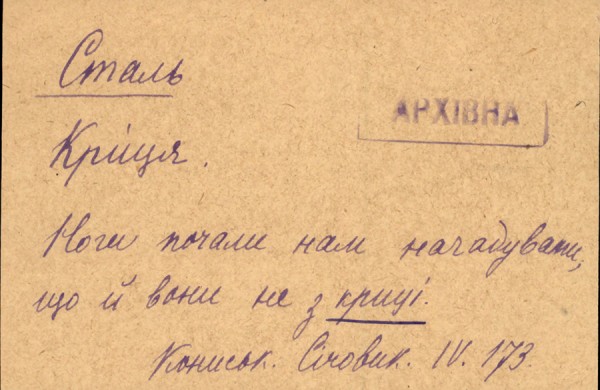 Сталь
АРХІВНА
Кріця.
Ноги почали нам нагадувати,
що й вони не з криці.
Кониськ. Січовик. IV. 173.